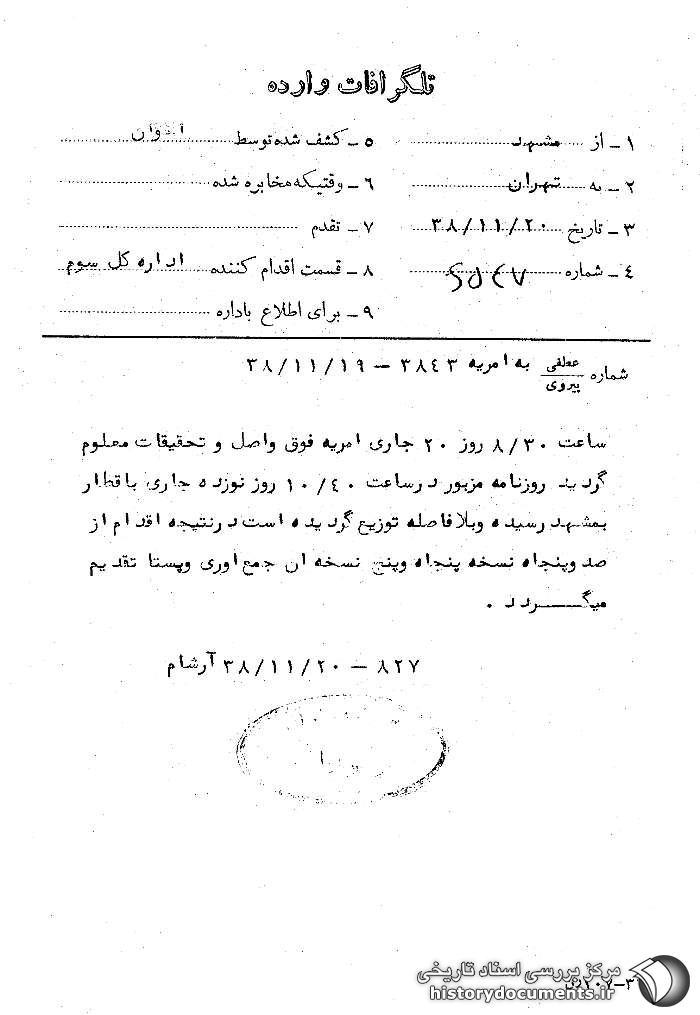 تلگرافات وارده
۱ - از مشهد
۲ - به تهران
۳ - تاریخ ۳۸/۱۱/۲۰
۴ - شماره
۵ - کشف شده توسط
۶ - وقتیکه مخابره شده
۷ - تقدم
۸ - قسمت اقدام کننده اداره کل سوم
۹ - برای اطلاع باداره
شماره عطفی پیروی به امریه ۳۸۴۳ - ۳۸/۱۱/۱۹
ساعت ۸/۳۰ روز ۲۰ جاری امریه فوق واصل و تحقیقات معلوم
گردید روزنامه مزبور درساعت ۱۰/۴۰ روز نوزده جاری باقطار
بمشهد رسیده وبلافاصله توزیع گردیده است درنتیجه اقدام از
صد وپنجاه نسخه پنجاه وپنج نسخه ان جمع اوری وپستا تقدیم
میگردد .
۸۲۷ - ۳۸/۱۱/۲۰ آرشام
مرکز بررسی اسناد تاریخی
historydocuments.ir